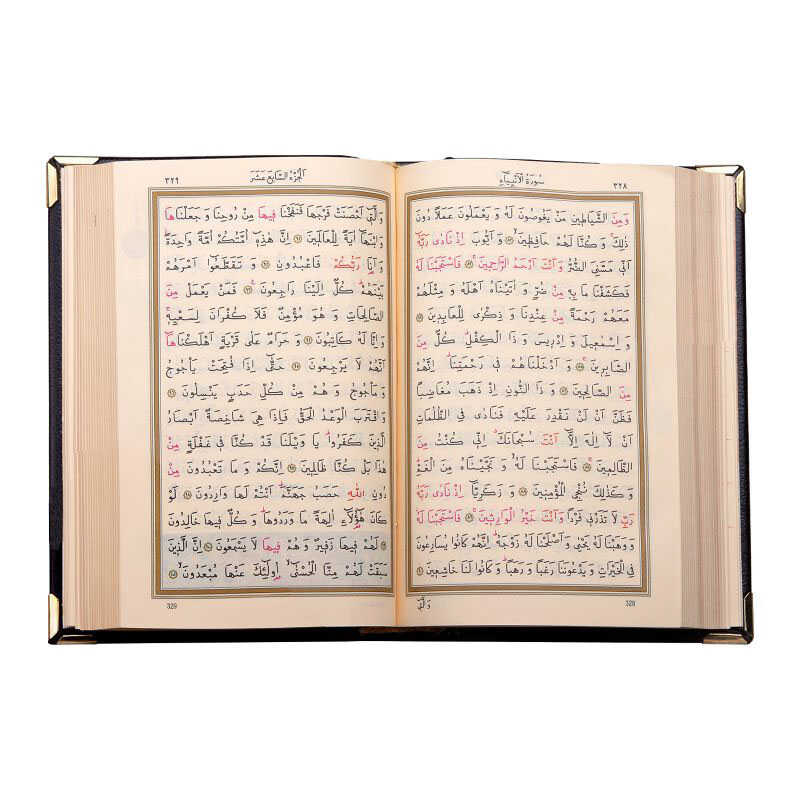 سُورَةُ الْأَنْبِيَاءِ
٣٢٨
وَمِنَ الشَّيَاطِينِ مَنْ يَغُوصُونَ لَهُ وَ يَعْمَلُونَ عَمَلًا دُونَ
ذٰلِكَ ۚ وَ كُنَّا لَهُمْ حَافِظِينَ ۙ وَ اَيُّوبَ اِذْ نَادٰى رَبَّهُٓ
اَنِّي مَسَّنِيَ الضُّرُّ وَاَنْتَ اَرْحَمُ الرَّاحِمِينَ ۚ فَاسْتَجَبْنَا لَهُ
فَكَشَفْنَا مَا بِهِ مِنْ ضُرٍّ وَ اٰتَيْنَاهُ اَهْلَهُ وَ مِثْلَهُمْ
مَعَهُمْ رَحْمَةً مِنْ عِنْدِنَا وَ ذِكْرٰى لِلْعَابِدِينَ
وَ اِسْمٰعِيلَ وَ اِدْرِيسَ وَ ذَا الْكِفْلِ ۜ كُلٌّ مِنَ
الصَّابِرِينَ ۚ وَ اَدْخَلْنَاهُمْ فِي رَحْمَتِنَا ۜ اِنَّهُمْ
مِنَ الصَّالِحِينَ وَ ذَا النُّونِ اِذْ ذَهَبَ مُغَاضِبًا
فَظَنَّ اَنْ لَنْ نَقْدِرَ عَلَيْهِ فَنَادٰى فِي الظُّلُمَاتِ
اَنْ لَٓا اِلٰهَ اِلَّٓا اَنْتَ سُبْحَانَكَ ۗ اِنِّي كُنْتُ مِنَ
الظَّالِمِينَ ۚ فَاسْتَجَبْنَا لَهُ ۙ وَ نَجَّيْنَاهُ مِنَ الْغَمِّ
وَ كَذٰلِكَ نُنْجِي الْمُؤْمِنِينَ وَ زَكَرِيَّٓا اِذْ نَادٰى رَبَّهُ
رَبِّ لَا تَذَرْنِي فَرْدًا وَاَنْتَ خَيْرُ الْوَارِثِينَ ۚ فَاسْتَجَبْنَا لَهُ
وَ وَهَبْنَا لَهُ يَحْيٰى وَ اَصْلَحْنَا لَهُ زَوْجَهُ ۜ اِنَّهُمْ كَانُوا يُسَارِعُونَ
فِي الْخَيْرَاتِ وَ يَدْعُونَنَا رَغَبًا وَ رَهَبًا ۜ وَ كَانُوا لَنَا خَاشِعِينَ
328
وَالَّتِي
الْجُزْءُ السَّابِعَ عَشَرَ
٣٢٩
وَالَّتِٓي اَحْصَنَتْ فَرْجَهَا فَنَفَخْنَا فِيهَا مِنْ رُوحِنَا وَ جَعَلْنَاهَا
وَابْنَهَٓا اٰيَةً لِلْعَالَمِينَ اِنَّ هٰذِهِٓ اُمَّتُكُمْ اُمَّةً وَاحِدَةً
وَاَنَا رَبُّكُمْ فَاعْبُدُونِ وَ تَقَطَّعُٓوا اَمْرَهُمْ
بَيْنَهُمْ ۜ كُلٌّ اِلَيْنَا رَاجِعُونَ فَمَنْ يَعْمَلْ مِنَ
الصَّالِحَاتِ وَ هُوَ مُؤْمِنٌ فَلَا كُفْرَانَ لِسَعْيِهِ
وَاِنَّا لَهُ كَاتِبُونَ وَ حَرَامٌ عَلٰى قَرْيَةٍ اَهْلَكْنَاهَٓا
اَنَّهُمْ لَا يَرْجِعُونَ حَتّٰٓى اِذَا فُتِحَتْ يَأْجُوجُ
وَ مَأْجُوجُ وَ هُمْ مِنْ كُلِّ حَدَبٍ يَنْسِلُونَ
وَاقْتَرَبَ الْوَعْدُ الْحَقُّ فَاِذَا هِيَ شَاخِصَةٌ اَبْصَارُ
الَّذِينَ كَفَرُوا ۜ يَا وَيْلَنَا قَدْ كُنَّا فِي غَفْلَةٍ مِنْ
هٰذَا بَلْ كُنَّا ظَالِمِينَ اِنَّكُمْ وَ مَا تَعْبُدُونَ مِنْ
دُونِ اللّٰهِ حَصَبُ جَهَنَّمَ ۜ اَنْتُمْ لَهَا وَارِدُونَ لَوْ
كَانَ هٰٓؤُلَٓاءِ اٰلِهَةً مَا وَرَدُوهَا ۜ وَ كُلٌّ فِيهَا خَالِدُونَ
لَهُمْ فِيهَا زَفِيرٌ وَ هُمْ فِيهَا لَا يَسْمَعُونَ اِنَّ الَّذِينَ
سَبَقَتْ لَهُمْ مِنَّا الْحُسْنٰٓى ۙ اُولٰٓئِكَ عَنْهَا مُبْعَدُونَ
329